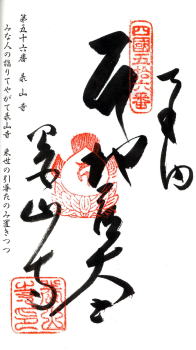 奉納
四國五拾六番
泰山寺
第五十六番　泰山寺
みな人の詣りてやがて泰山寺　来世の引導たのみ置きつつ